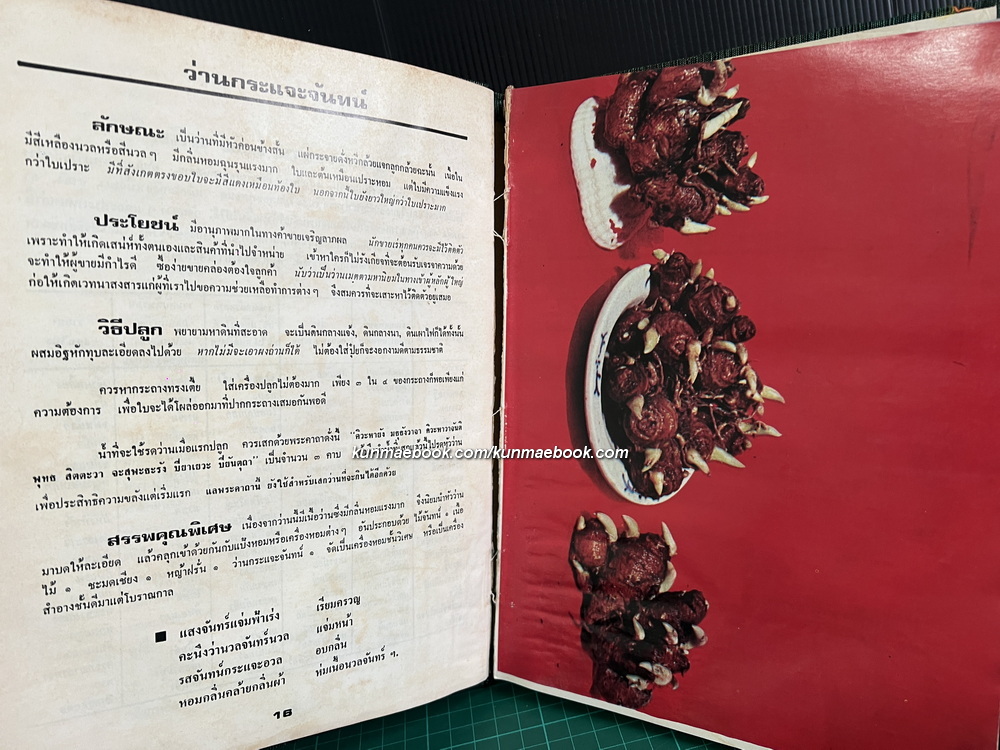 ว่านกระแจะจันทน์
ลักษณะ เป็นว่านที่มีหัวค่อนข้างสั้น แผ่กระจายดั่งหวีกล้วยแจกลูกกล้วยฉะนั้น เนื้อใน
มีสีเหลืองนวลหรือสีนวลๆ มีกลิ่นหอมฉุนรุนแรงมาก ใบและต้นเหมือนเปราะหอม แต่ใบมีความแข็งแรง
กว่าใบเปราะ มีที่สังเกตตรงขอบใบจะมีสีแดงเหมือนท้องใบ นอกจากนี้ใบยังยาวใหญ่กว่าใบเปราะมาก
ประโยชน์ มีอานุภาพมากในทางค้าขายเจริญลาภผล นักขายเร่ทุกคนควรจะมีไว้ติดตัว
เพราะทำให้เกิดเสน่ห์ทั้งตนเองและสินค้าที่นำไปจำหน่าย เข้าหาใครก็ไม่รังเกียจที่จะต้อนรับเจรจาความด้วย
จะทำให้ผู้ขายมีกำไรดี ซื้อง่ายขายคล่องต้องใจลูกค้า นับว่าเป็นว่านเมตตามหานิยมในทางเข้าผู้หลักผู้ใหญ่
ก่อให้เกิดเวทนาสงสารแก่ผู้ที่เราไปขอความช่วยเหลือทำการต่างๆ จึงสมควรที่จะเสาะหาไว้ติดตัวอยู่เสมอ
วิธีปลูก พยายามหาดินที่สะอาด จะเป็นดินกลางแจ้ง, ดินกลางนา, ดินเผาไฟก็ได้ทั้งนั้น
ผสมอิฐหักทุบละเอียดลงไปด้วย หากไม่มีจะเอาผงถ่านก็ได้ ไม่ต้องใส่ปุ๋ยก็จะงอกงามดีตามธรรมชาติ
ควรหากระถางทรงเตี้ย ใส่เครื่องปลูกไม่ต้องมาก เพียง ๓ ใน ๔ ของกระถางก็พอเพียงแก่
ความต้องการ เพื่อใบจะได้โผล่ออกมาที่ปากกระถางเสมอกันพอดี
น้ำที่จะใช้รดว่านเมื่อแรกปลูก ควรเสกด้วยพระคาถาดั่งนี้
เป็นจำนวน ๓ คาบ
เพื่อประสิทธิความขลังแต่เริ่มแรก แลพระคาถานี้ ยังใช้สำหรับเสกว่านที่จะกินได้อีกด้วย
kunmaebook.com/kunmaebook.com
สรรพคุณพิเศษ เนื่องจากว่านนี้มีเนื้อว่านซึ่งมีกลิ่นหอมแรงมาก จึงนิยมนำหัวว่าน
มาบดให้ละเอียด แล้วคลุกเข้าด้วยกันกับแป้งหอมหรือเครื่องหอมต่างๆ อันประกอบด้วย ไม้จันทน์ ๑ เนื้อ
ไม้ ๑ ชะมดเชียง ๑ หญ้าฝรั่น ๑ ว่านกระแจะจันทน์ ๑ จัดเป็นเครื่องหอมชั้นวิเศษ หรือเป็นเครื่อง
สำอางชั้นดีมาแต่โบราณกาล
■ แสงจันทร์แจ่มฟ้าเร่ง เรียมครวญ
คะนึงว่านวลจันทร์นวล แจ่มหน้า
รสจันทน์กระแจะอวล อบกลิ่น
หอมกลิ่นคล้ายกลิ่นผ้า ห่มเนื้อนวลจันทร์ ฯ.
16